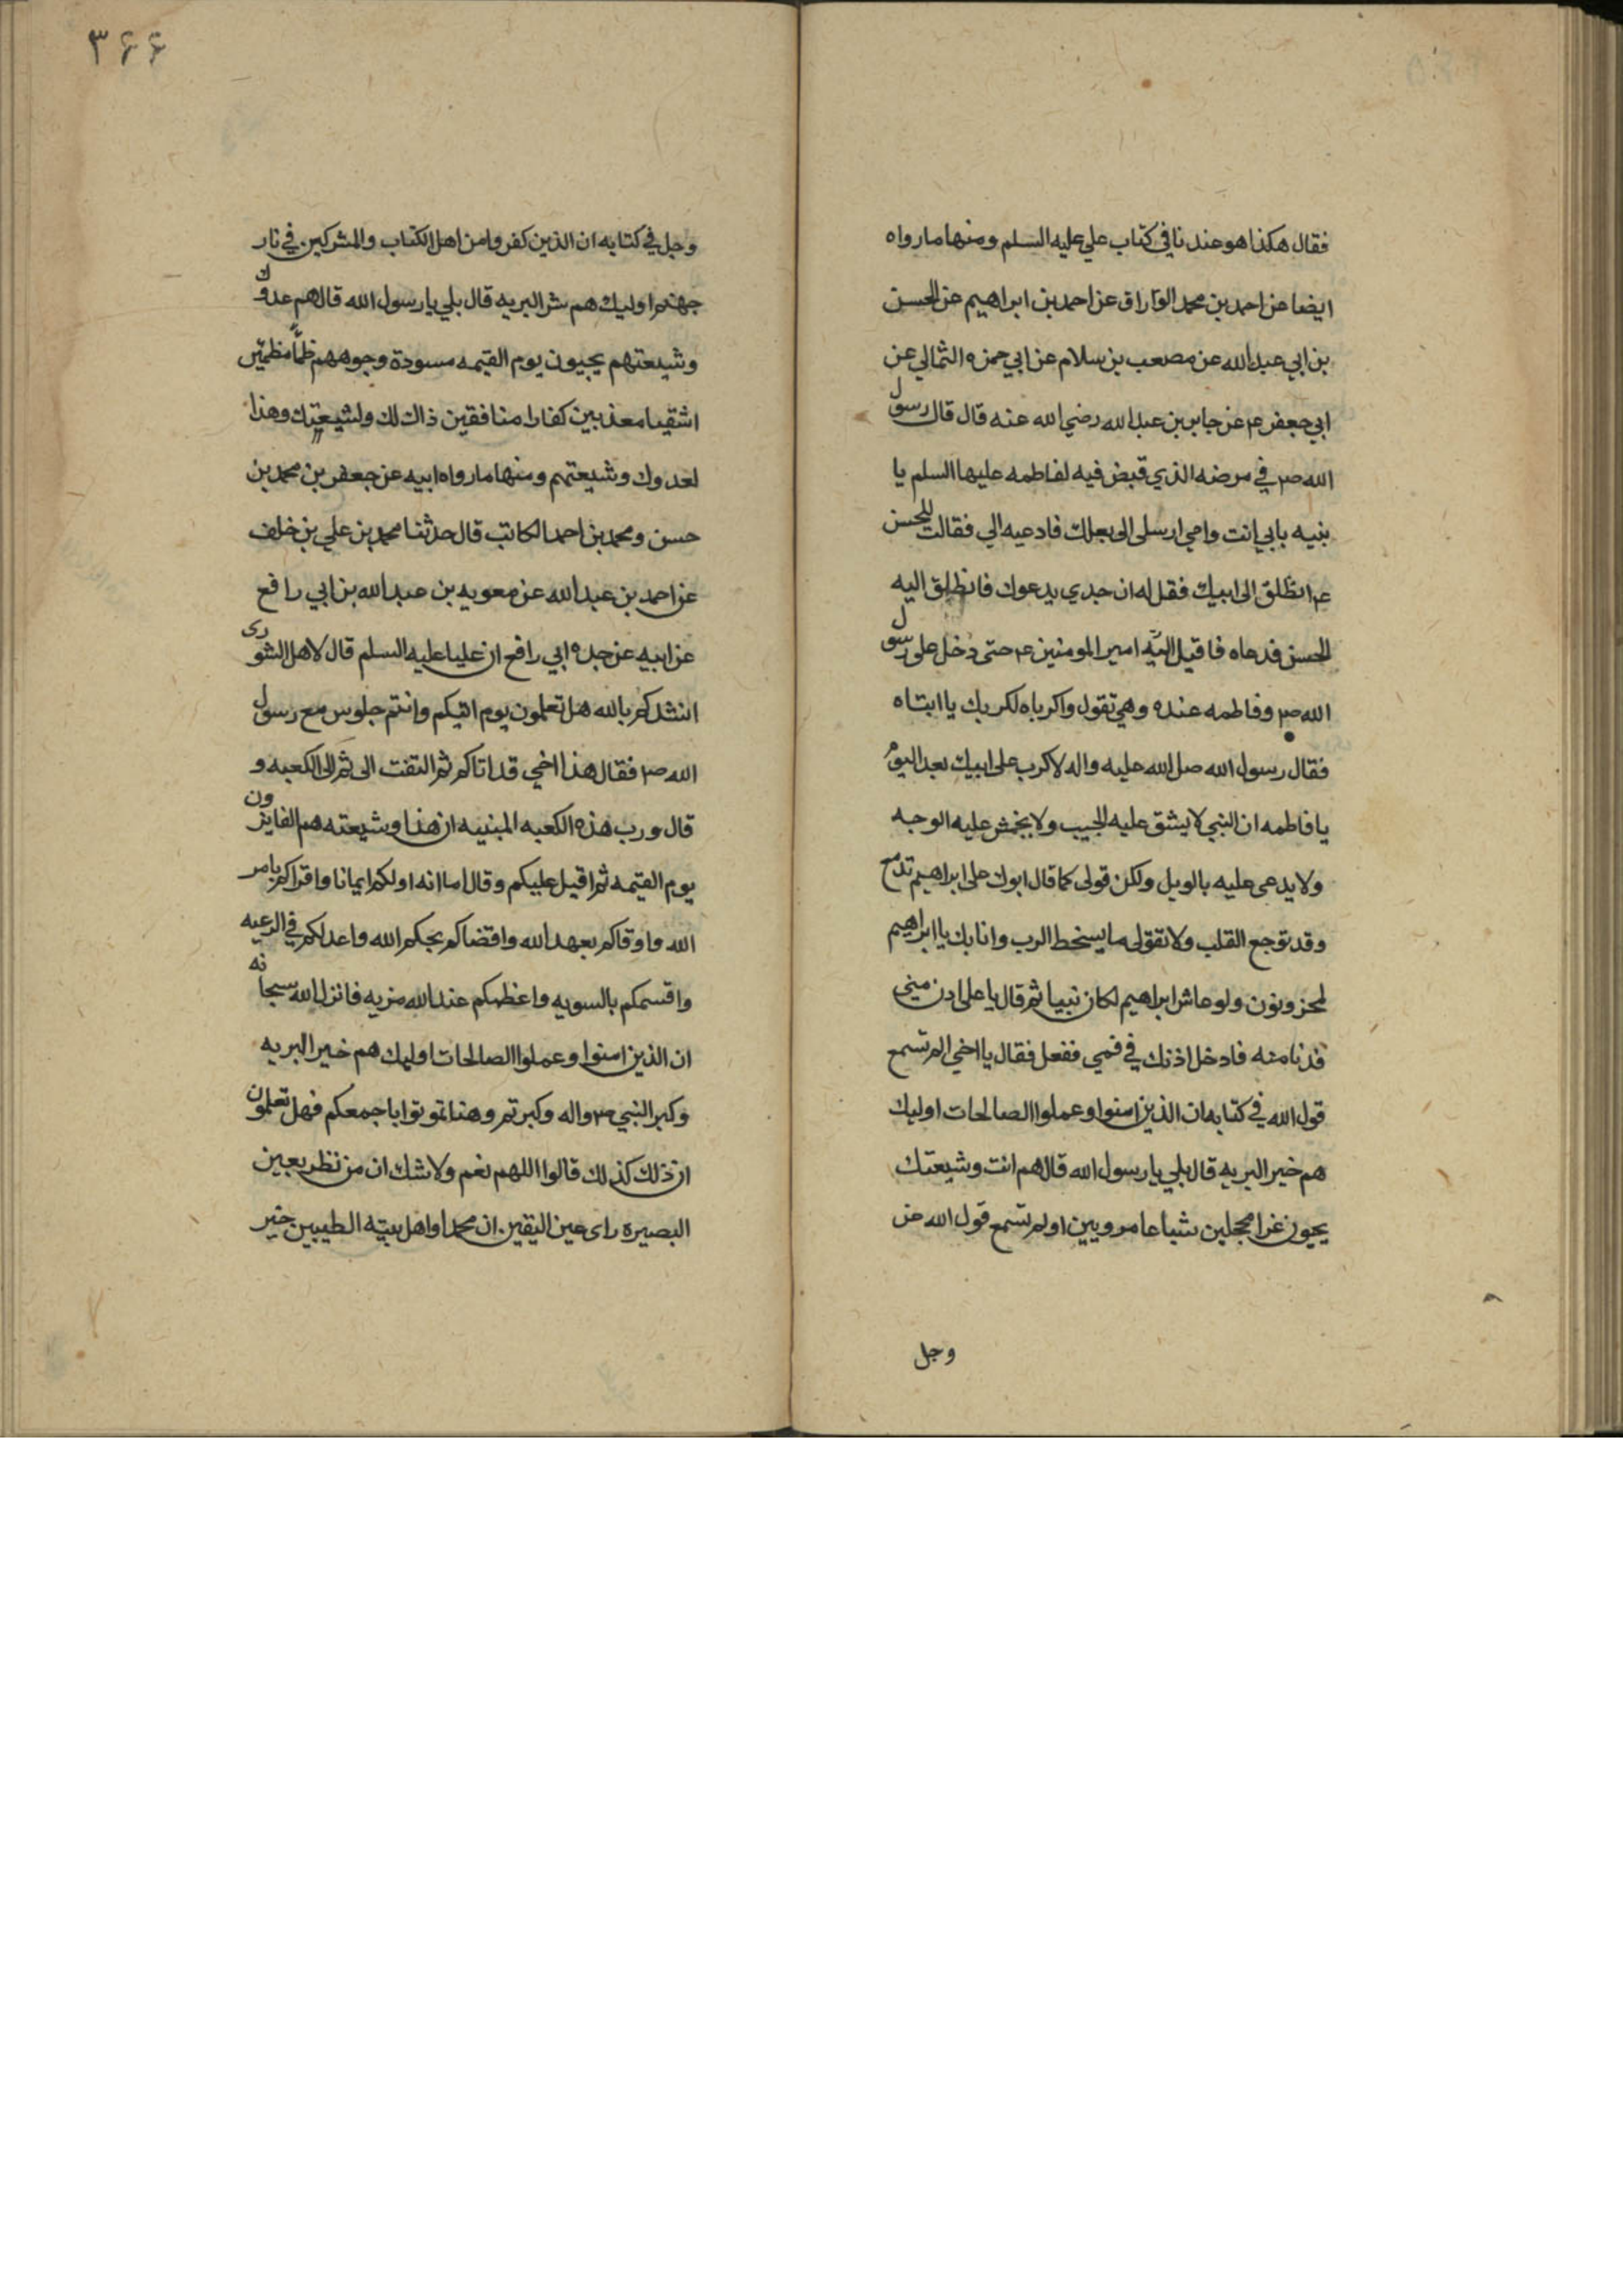 فقال هكذا هو عندنا في كتاب علي عليه السلم ومنها ما رواه
ايضا عن احمد بن محمد الوراق عن احمد بن ابراهيم عن الحسن
بن ابي عبد الله عن مصعب بن سلام عن ابي حمزه الثمالي عن
ابي جعفر ع عن جابر بن عبد الله رضي الله عنه قال قال رسول
الله ص في مرضه الذي قبض فيه لفاطمه عليها السلم يا
بنيه بابي انت وامي ارسلي الى بعلك فادعيه الي فقالت للحسن
ع انطلق الى ابيك فقل له ان جدي يدعوك فانطلق اليه
الحسن فدعاه فاقبل اليه امير المومنين ع حتى دخل على رسول
الله ص وفاطمه عنده وهي تقول واكرباه لكربك يا ابتاه
فقال رسول الله صل الله عليه واله لا كرب على ابيك بعد اليوم
يا فاطمه ان النبي لا يشق عليه الجيب ولا يخمش عليه الوجه
ولا يدعى عليه بالويل ولكن قولي كما قال ابوك على ابراهيم تدمع
وقد توجع القلب ولا تقولي ما يسخط الرب وانا بك يا ابراهيم
لمحزونون ولو عاش ابراهيم لكان نبيا ثم قال يا علي ادن مني
فدنا منه فادخل اذنك في فمي ففعل فقال يا اخي الم تسمع
قول الله في كتابه ان الذين امنوا وعملوا الصالحات اوليك
هم خير البريه قال بلي يا رسول الله قال هم انت وشيعتك
يجيون غرا محجلين شباعا مرويين اولم تسمع قول الله عز
وجل
٣٤٤
وجل في كتابه ان الذين كفروا من اهل الكتاب والمشركين في نار
جهنم اوليك هم شر البريه قال بلي يا رسول الله قال هم عدوك
وشيعتهم يجيون يوم القيمه مسودة وجوههم ظمأ مظمئين
اشقيا معذبين كفارا منافقين ذاك لك ولشيعتك وهذا
لعدوك وشيعتهم ومنها ما رواه ابيه عن جعفر بن محمد بن
حسن ومحمد بن احمد الكاتب قال حدثنا محمد بن علي بن خلف
عن احمد بن عبد الله عن معويه بن عبد الله بن ابي رافع
عن ابيه عن جده ابي رافع ان عليا عليه السلم قال لاهل الشورى
انشدكم بالله هل تعلمون يوم اتيتكم وانتم جلوس مع رسول
الله ص فقال هذا اخي قد اتاكم ثم التفت الى ثم الى الكعبه و
قال ورب هذه الكعبه المبنيه ان هذا وشيعته هم الفايزون
يوم القيمه ثم اقبل عليكم وقال اما انه اولكم ايمانا واقراكم بامر
الله واوقاكم بعهد الله واقضاكم بحكم الله واعدلكم في الرعيه
واقسمكم بالسويه واعظمكم عند الله مزيه فانزل الله سبحانه
ان الذين امنوا وعملوا الصالحات اوليك هم خير البريه
وكبر النبي ص واله وكبرتم وهناتموتوا باجمعكم فهل تعلمون
ان ذلك كذلك قالوا اللهم نعم ولا شك ان من نظر بعين
البصيره راى عين اليقين ان محمدا واهل بيته الطيبين خير